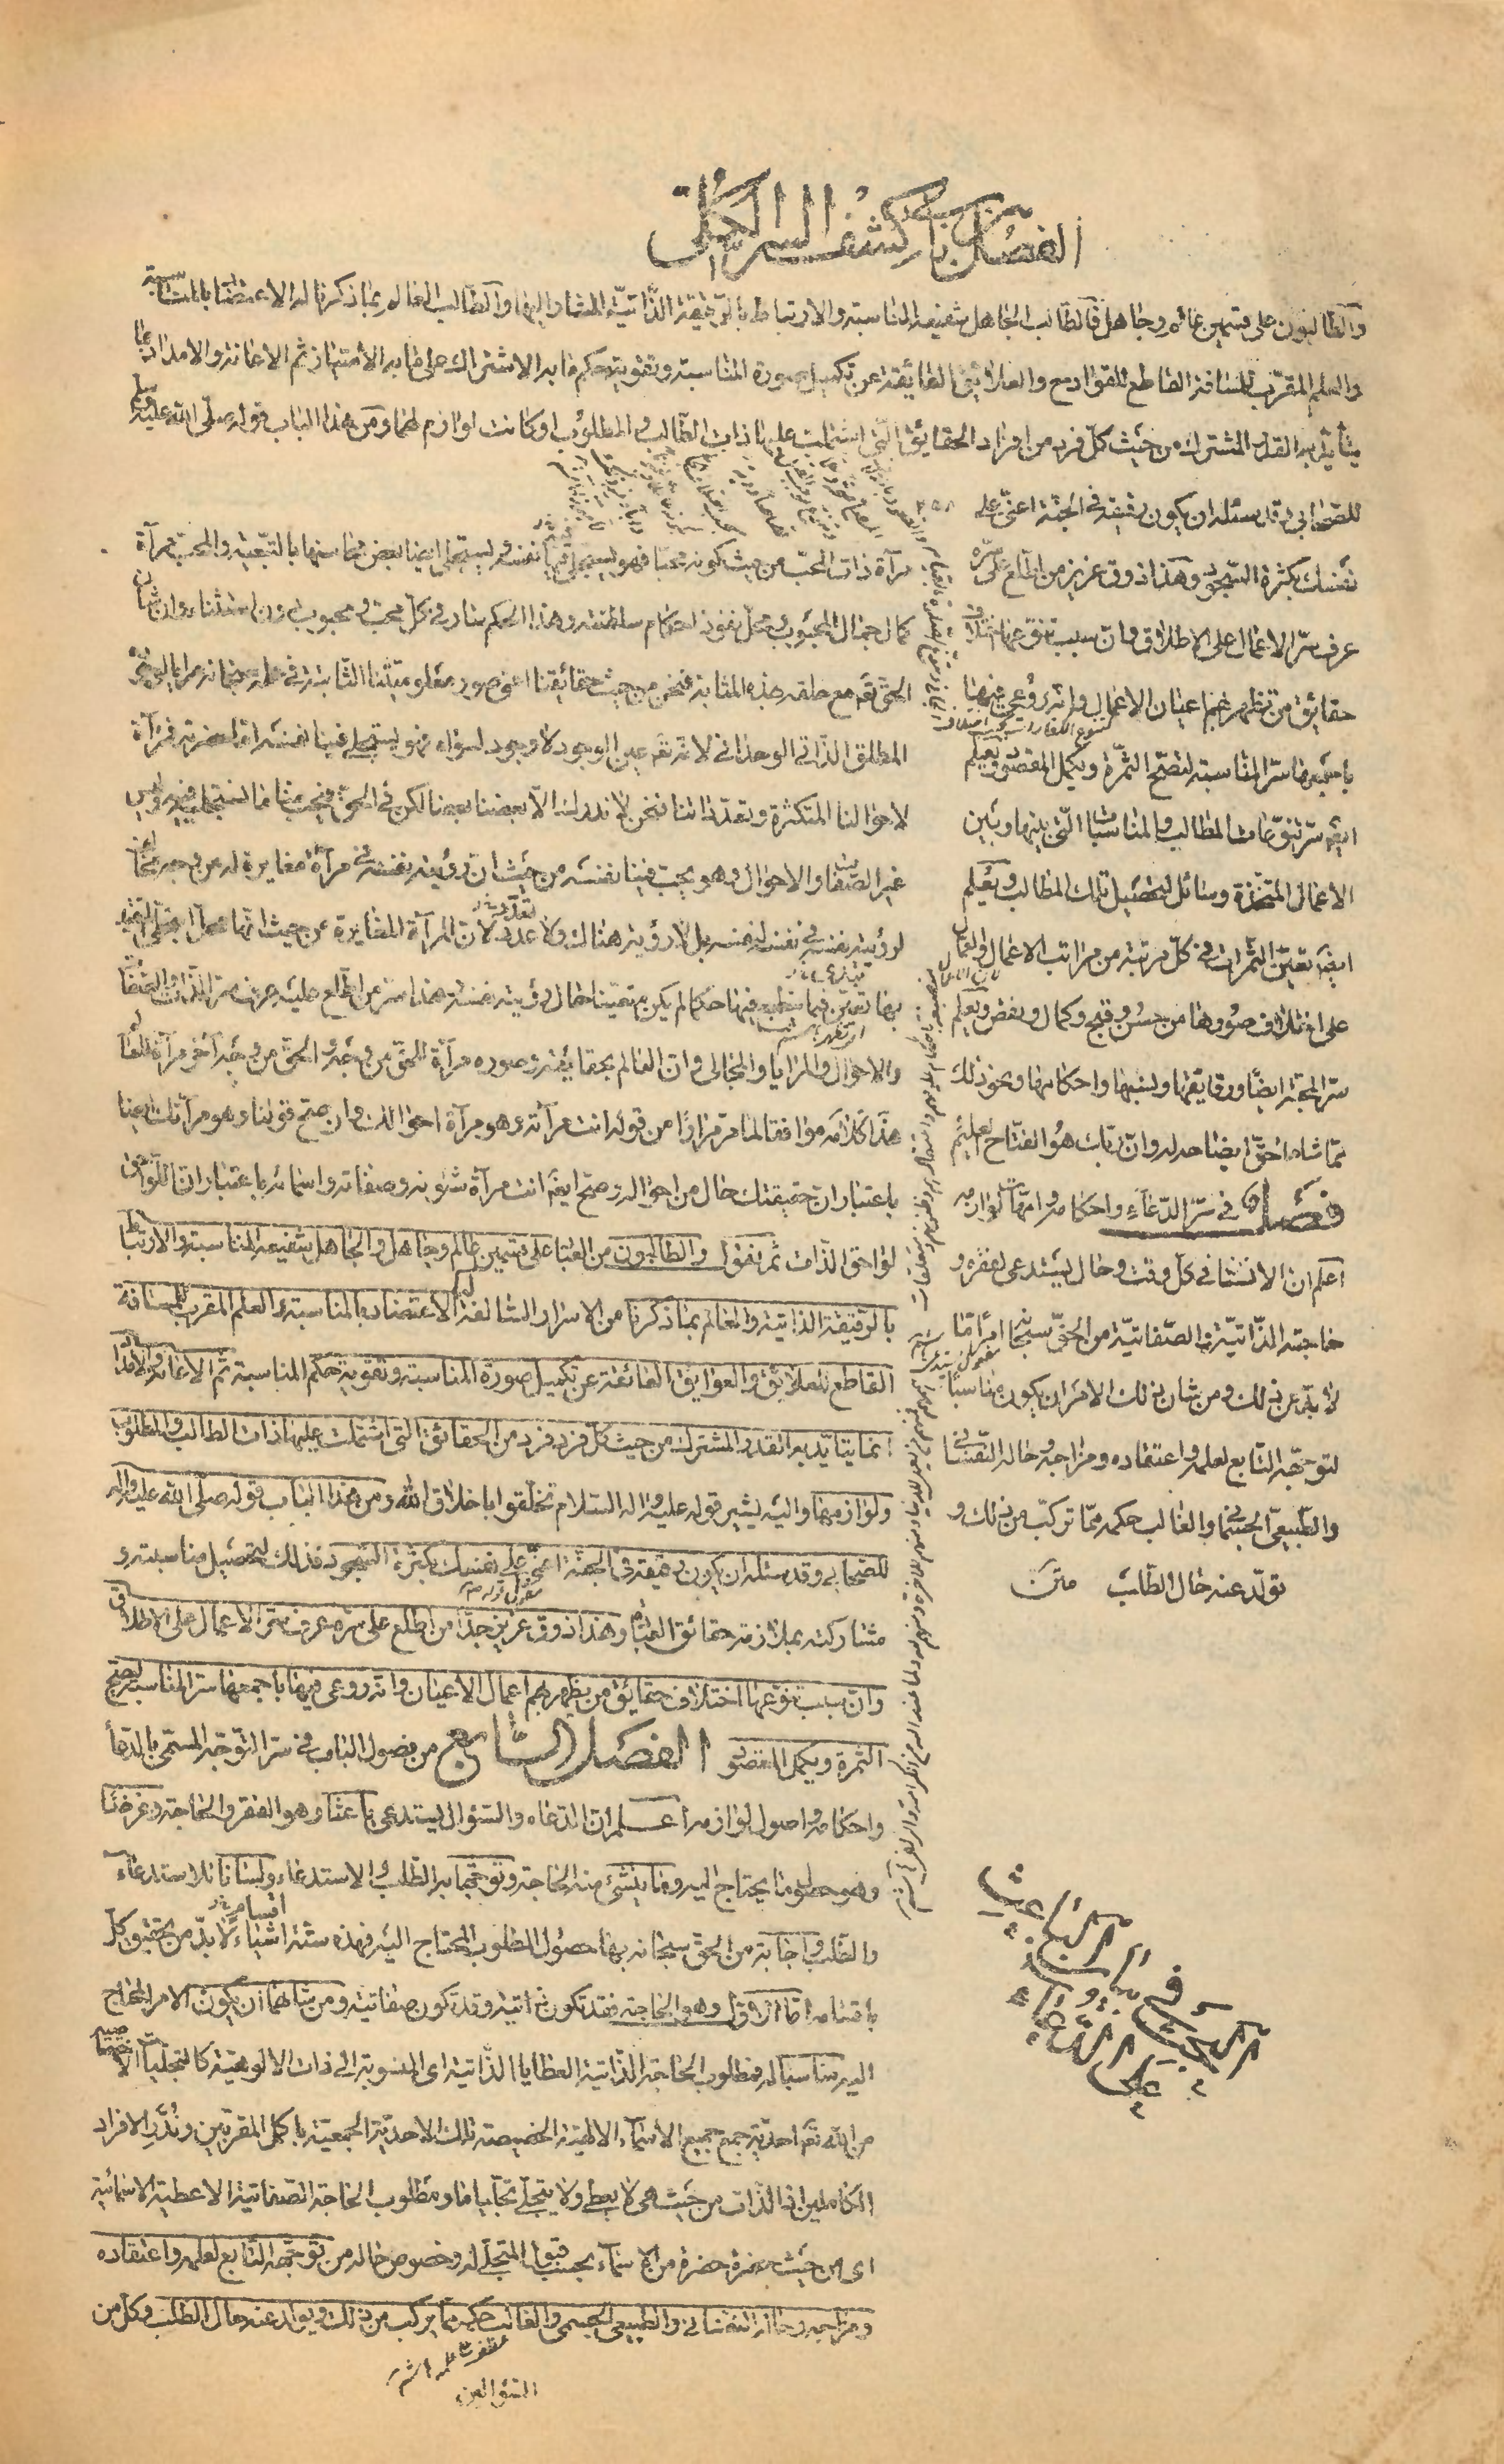 الفصل من باب كشف السر الكلى
والطالبون على قسمين عالم وجاهل فالطالب الجاهل شفيعه المناسبة والارتباط بالرقيقة الذاتية المشار اليها والطالب العالم بما ذكرنا له الاعتضاد بالمناسبة
والعلم المقرب للمسافة القاطع للقوادح والعلائق العائقة عن تكميل صورة المناسبة وتقوية حكم ما به الاشتراك على ما به الامتياز ثم الاعانة والامداد بما
يتأيد به القدر المشترك من حيث كل فرد من افراد الحقائق التى اشتملت عليها ذات الطالب والمطلوب او كانت لوازم لهما ومن هذا الباب قوله صلى الله عليه وسلم
للصحابى وقد سئله ان يكون رفيقه فى الجنة اعنى على
نفسك بكثرة السجود وهذا ذوق عزيز من اطلع على سره
عرف سر الاعمال على الاطلاق وان سبب تنوعها اختلاف
حقائق من تظهر بهم اعيان الاعمال وانه روعى فيها
باجمعها سر المناسبة لتصح الثمرة ويكمل المقصود ويعلم
ايضا سر تنوعات المطالب والمناسبات التى بينها وبين
الاعمال المتخذة وسائل لتحصيل تلك المطالب ويعلم
ايضا تعين الثمرات فى كل مرتبة من مراتب الاعمال والعمال
على اختلاف صورها من حسن وقبح وكمال ونقص ويعلم
سر المحبة ايضا ورقايقها ونسبها واحكامها ونحو ذلك
مما شاء الحق ايضاحه له وان ربك هو الفتاح العليم
فصل فى سر الدعاء واحكامه وامهات لوازمه
اعلم ان الانسان فى كل وقت وحال يستدعى لفقره و
حاجته الذاتية والصفاتية من الحق سبحانه امرا ما
لا بد عن ذلك ومن شان ذلك الامر ان يكون مناسبا
لتوجهه التابع لعلمه واعتقاده ومزاجه وحاله النفسانى
والطبيعى الجسمانى والغالب حكمه مما تركب من ذلك و
تولد عنه حال الطلب متن
مرآة ذات المحب من حيث كونه محبا فهو يستجلى فيها نفسه ويستجلى ايضا بعض محاسنها بالتبعية والمحب مرآة
كمال جمال المحبوب ومحل نفوذ احكام سلطنته وهذا الحكم سار فى كل محب ومحبوب دون استثناء وان شأن
الحق تعم مع خلقه بهذه المثابة فنحن من حيث حقائقنا اعنى صور معلوميتنا الثابتة فى علمه سبحانه مرايا لوجوده
المطلق الذاتى الوحدانى لانه تعم عين الوجود لا وجود لسواه فهو يستجلى فينا نفسه اما حضرته فمرآة
لاحوالنا المتكثرة وتعدداتنا فنحن لا ندرك الا بعضنا بعضا لكن فى الحق فيحب منا ما استجلى فيه وليس
غير الصفات والاحوال وهو يحب فينا نفسه من حيث ان رؤيته نفسه فى مرآة مغايرة له من وجه مخالفة
لرؤيته نفسه فى نفسه لنفسه بل لا رؤية هنالك ولا عدد لان المرآة المغايرة من حيث انها محل التجلى المتعين
بها تعين فيما ينطبع فيها حكما لم يكن متعينا حال رؤيته نفسه هذا سر من اطلع عليه عرف سر الذات والصفات
والاحوال والمرايا والمجالى وان العالم بحقايقه وصوره مرآة للحق من وجه والحق من وجه آخر مرآة للعالم
هذا كلامه موافقا لما مر مرارا من قوله انت مرآته وهو مرآة احوالك وان صح قولنا وهو مرآتك ايضا
باعتبار ان حقيقتك حال من احواله وصح ايضا انت مرآة شئونه وصفاته واسمائه باعتبار ان اللواحق
لواحق الذات ثم نقول والطالبون من العباد على قسمين عالم وجاهل والجاهل شفيعه المناسبة والارتباط
بالرقيقة الذاتية والعالم بما ذكرنا من الاسرار السالفة له الاعتضاد بالمناسبة والعلم المقرب للمسافة
القاطع للعلايق والعوايق العائقة عن تكميل صورة المناسبة وتقوية حكم المناسبة ثم الاعانة والامداد
انما يتأيد به القدر المشترك من حيث كل فرد فرد من الحقائق التى اشتملت عليها ذات الطالب والمطلوب
ولوازمهما واليه يشير قوله عليه واله السلام تخلقوا باخلاق الله ومن هذا الباب قوله صلى الله عليه واله
للصحابى وقد سئله ان يكون رفيقه فى الجنة اعنى على نفسك بكثرة السجود فذلك لتحصيل مناسبته و
مشاركته بملازمة حقائق العباد وهذا ذوق عزيز جدا من اطلع على سره عرف سر الاعمال على الاطلاق
وان سبب تنوعها اختلاف حقائق من يظهر بهم اعمال الاعيان وانه روعى فيها باجمعها سر المناسبة لتصح
الثمرة ويكمل المقصود الفصل السابع من فصول الباب فى سر التوجه المسمى بالدعاء
واحكامه واصول لوازمه اعلم ان الدعاء والسؤال يستدعى باعثا وهو الفقر والحاجة وغرضا
وهو حصول ما يحتاج اليه وما ينشئ منه الحاجة وتوجها به الطلب والاستدعاء ولسانا للاستدعاء
والطلب واجابة من الحق سبحانه بها حصول المطلوب المحتاج اليه فهذه ستة اشياء لا بد من تحقيق كل
باقسامه اما الاول وهو الحاجة فقد تكون ذاتية وقد تكون صفاتية ومن شانها ان يكون الامر المحتاج
اليه مناسبا له فمطلوب الحاجة الذاتية العطايا الذاتية اى المنسوبة الى ذات الالوهية كالتجليات الاختصاصية
من الله تعم احدية جمع جميع الاسماء الالهية الخصيصة تلك الاحدية الجمعية باكمل المقربين وندر الافراد
الكاملين اذ الذات من حيث هى لا يعطى ولا يتجلى تجليا ما ومطلوب الحاجة الصفاتية الاعطية الاسمائية
اى من حيث حضرة حضرة من الاسماء بحسب قبول المتجلى له وخصوص حاله من توجهه التابع لعلمه واعتقاده
ومزاجه وحاله النفسانى والطبيعى الجسمى والغالب حكمه مما يركب من ذلك ويولد عنه حال الطلب وكل من
السؤالين
البحث فى بيان الباعث
على الدعاء